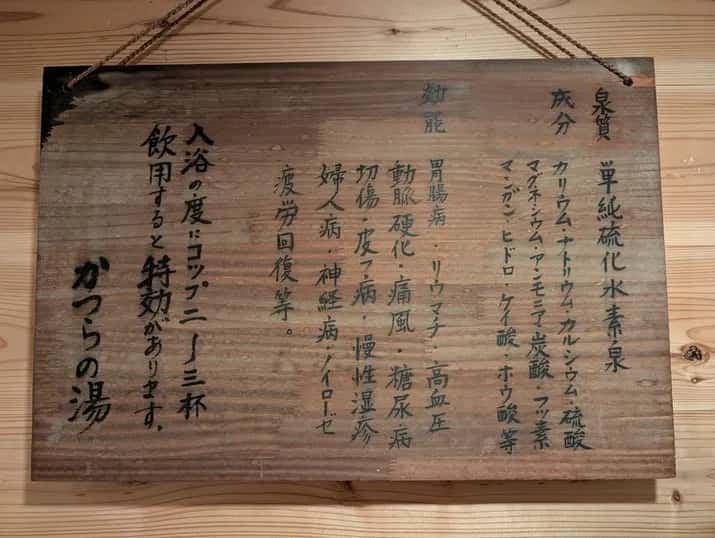 泉質 単純硫化水素泉
成分 カリウム・ナトリウム・カルシウム・硫酸
マグネシウム・アンモニア炭酸・フッ素
マンガン・ヒドロ・ケイ酸・ホウ酸等
効能 胃腸病・リウマチ・高血圧
動脈硬化・痛風・糖尿病
切傷・皮フ病・慢性湿疹
婦人病・神経病・ノイローゼ
疲労回復等。
入浴の度にコップ二〜三杯
飲用すると特効があります。
かつらの湯